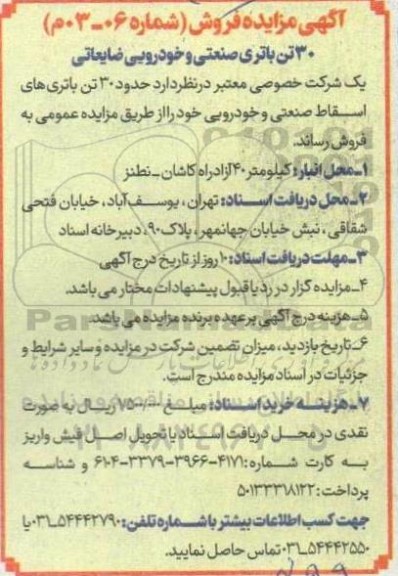 آگهی مزایده فروش (شماره ۰۶-۰۳م)
۳۰ تن باتری صنعتی و خودرویی ضایعاتی
یک شرکت خصوصی معتبر در نظر دارد حدود ۳۰ تن باتری های
اسـقاط صنعتی و خودرویی خود را از طریق مزایده عمومی به
فروش رساند.
۱-محل انبار: کیلومتر ۴۰ آزادراه کاشان - نطنز
۲-محل دریافت اسـناد: تهران، یوسـف آباد، خیابان فتحی
شقاقی، نبش خیابان جهانمهر، پلاک ۹۰، دبیرخانه اسناد
۳-مهلت دریافت اسناد: ۱۰ روز از تاریخ درج آگهی
۴-مزایده گزار در رد یا قبول پیشنهادات مختار می باشد.
۵-هزینه درج آگهی بر عهده برنده مزایده می باشد.
۶-تاریخ بازدید، میزان تضمین شرکت در مزایده و سایر شرایط و
جزئیات در اسناد مزایده مندرج است.
۷-هزینـه خرید اسـناد: مبلـغ ۷۵۰٬۰۰۰ ریـال به صورت
نقدی در محـل دریافت اسـناد یا تحویل اصـل فیش واریز
به کارت شماره: ۴۱۷۱-۳۹۶۶-۳۳۷۹-۶۱۰۴ و شناسه
پرداخت: ۵۰۱۳۳۳۱۸۱۲۲
جهت کسب اطلاعات بیشتر با شـماره تلفن: ۵۴۴۴۲۷۹۰-۰۳۱ یا
۵۴۴۴۲۵۵۰-۰۳۱ تماس حاصل نمایید.